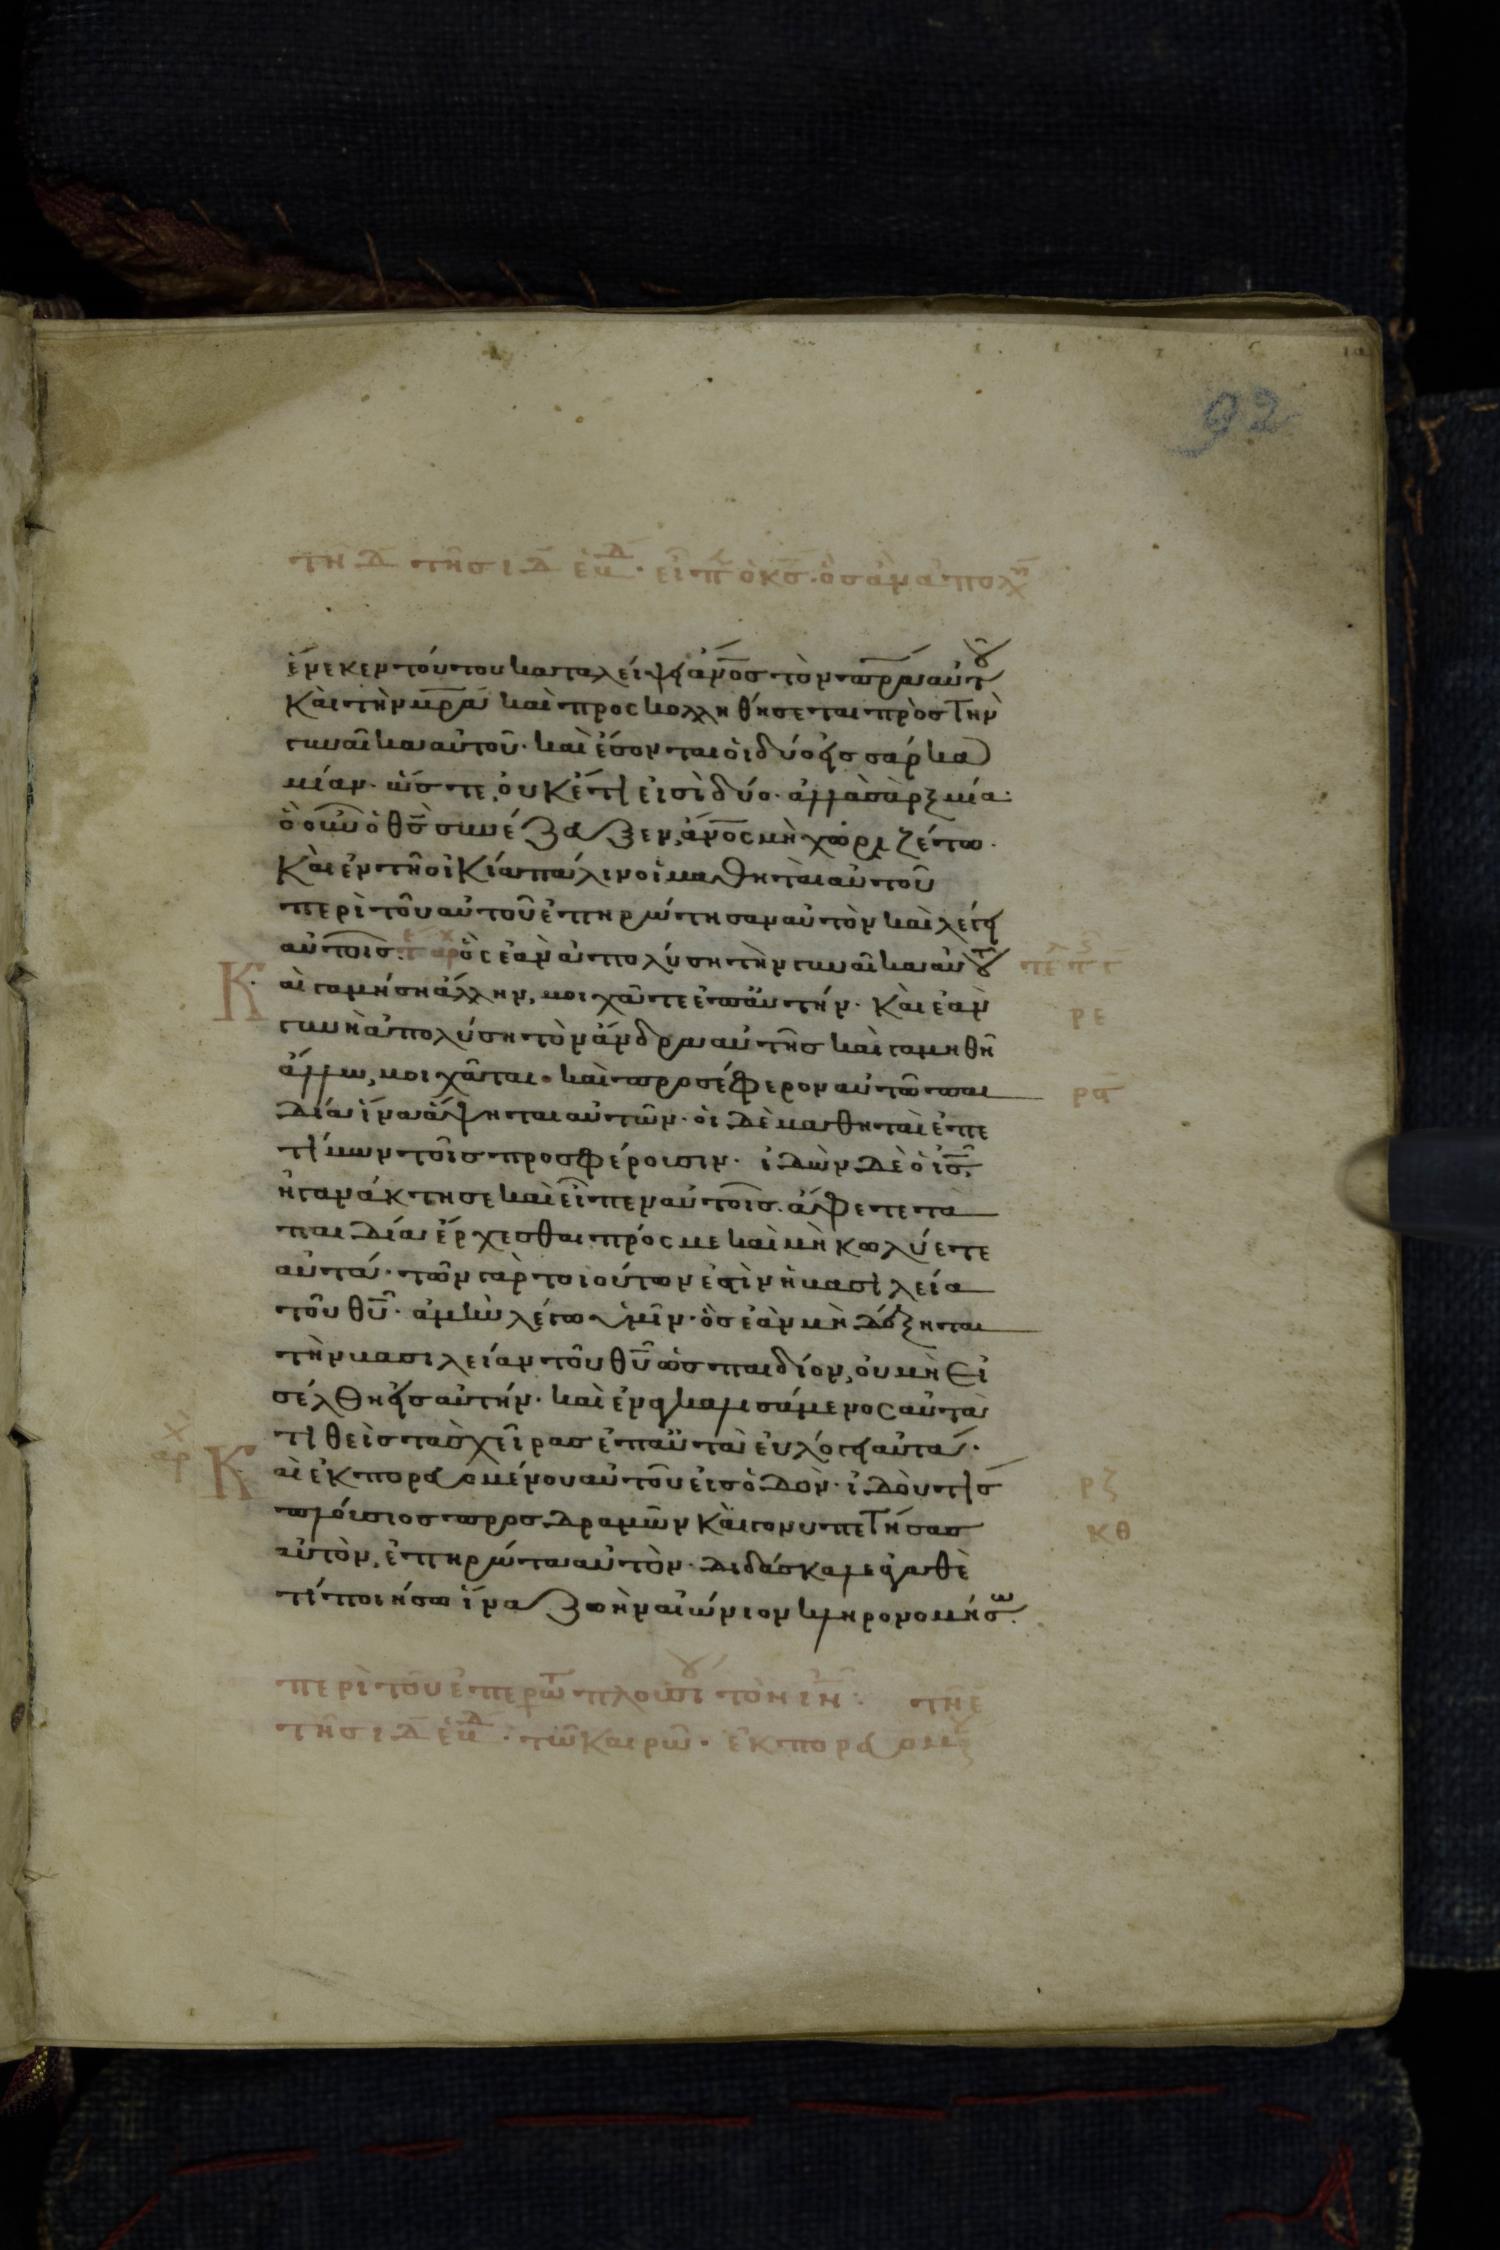 92
τῆ δ τῆς ιδ ἑβδ· εἶπ ὁ κς· ὃς ἂν ἀπολ
ἕνεκεν τούτου καταλείψει ἄνος τὸν πρα αὐτοῦ
καὶ τὴν μρα καὶ προσκολληθήσεται πρὸς τὴν
γυναῖκα αὐτοῦ· καὶ ἔσονται οἱ δύο εἰς σάρκα
μίαν· ὥστε, οὐκέτι εἰσὶ δύο· ἀλλὰ σὰρξ μία·
ὃ οὖν ὁ θς συνέζευξεν, ἄνος μὴ χωριζέτω·
Καὶ ἐν τῆ οἰκία πάλιν οἱ μαθηταὶ αὐτοῦ
περὶ τοῦ αὐτοῦ ἐπηρώτησαν αὐτὸν καὶ λέγει
αὐτοῖς· ὃς ἐὰν ἀπολύση τὴν γυναῖκα αὐτοῦ
Κ αὶ γαμήση ἄλλην, μοιχᾶτε ἐπ αὐτήν· Καὶ ἐὰν
γυνὴ ἀπολύση τὸν ἄνδρα αὐτῆς καὶ γαμηθῆ
ἄλλω, μοιχᾶται· καὶ προσέφερον αὐτῶ παι
δία ἵνα ἅψηται αὐτῶν· οἱ δὲ μαθηταὶ ἐπε
τίμων τοῖς προσφέρουσιν· ἰδὼν δὲ ὁ ις,
ἠγανάκτησε καὶ εἶπεν αὐτοῖς· ἄφετε τὰ
παιδία ἔρχεσθαι πρός με καὶ μὴ κωλύετε
αὐτά· τῶν γὰρ τοιούτων ἐστὶν ἡ βασιλεία
τοῦ θυ· ἀμὴν λέγω ὑμῖν· ὃς ἐὰν μὴ δέξηται
τὴν βασιλείαν τοῦ θυ ὡς παιδίον, οὐ μὴ εἰ
σέλθη εἰς αὐτήν· καὶ ἐναγκαλισάμενος αὐτὰ
τιθεὶς τὰς χεῖρας ἐπ αὐτὰ εὐλόγει αὐτά·
Κ αὶ ἐκπορευομένου αὐτοῦ εἰς ὁδὸν· ἰδού τις
πλούσιος προσδραμῶν καὶ γονυπετήσας
αὐτὸν, ἐπηρώτα αὐτὸν· διδάσκαλε ἀγαθὲ
τί ποιήσω ἵνα ζωὴν αἰώνιον κληρονομήσω·
ρε
ρς
ρζ
κθ
περὶ τοῦ ἐπερωτ πλουσίου τὸν ιν: τῆ ε
τῆς ιδ ἑβδ· τῶ καιρῶ· ἐκπορευομ